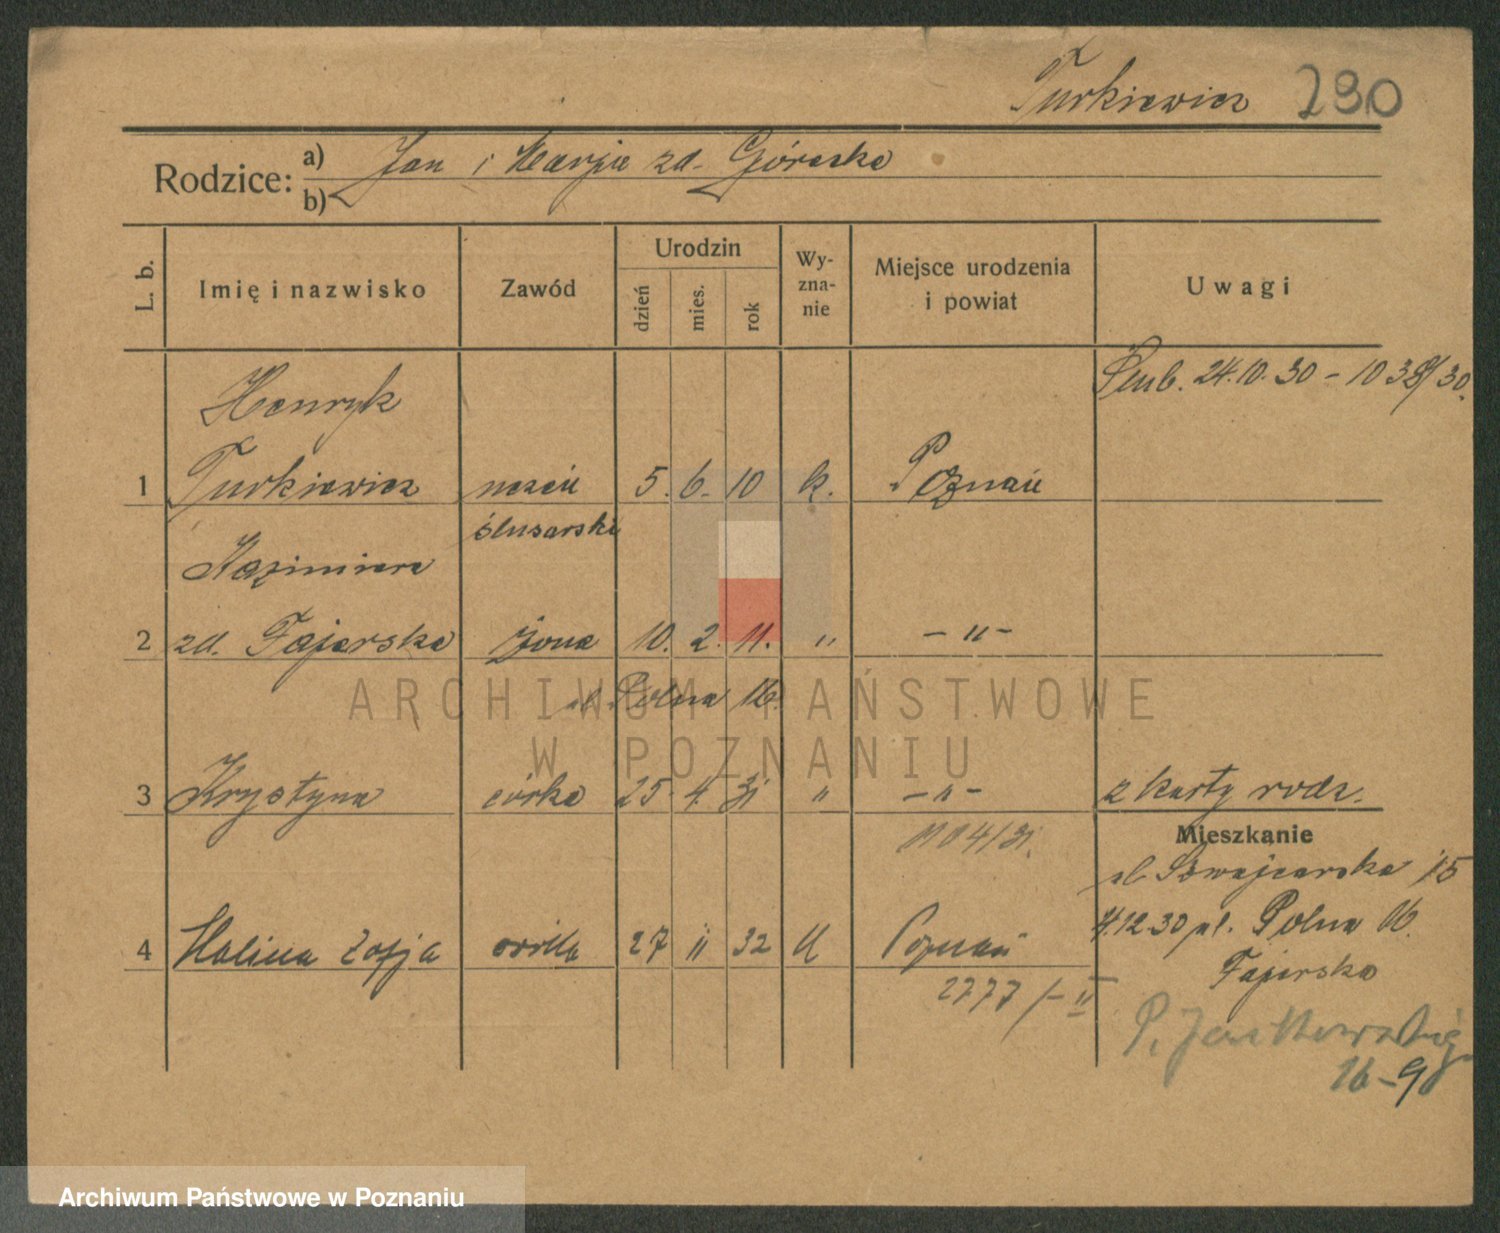 Turkiewicz 290
Rodzice: a) Jan i Marja zd. Górecka
b)
L. b. Imię i nazwisko Zawód Urodzin dzień mies. rok Wy-zna-nie Miejsce urodzenia i powiat Uwagi
Ślub. 24.10.30 - 1038/30.
Henryk
1 Turkiewicz uczeń 5. 6. 10 k. Poznań
ślusarski
Kazimiera
2 zd. Fajerska żona 10. 2. 11. " - " -
ul. Polna 16.
3 Krystyna córka 25. 4. 31 " - " - z karty rodz.
1104/31.
Mieszkanie
ul. Szwajcarska 15
4.12.30 ul. Polna 16.
4 Halina Zofja córka 27 11 32 k Poznań
Fajerska
2777/-II
16-9
ARCHIWUM PAŃSTWOWE
W POZNANIU
Archiwum Państwowe w Poznaniu